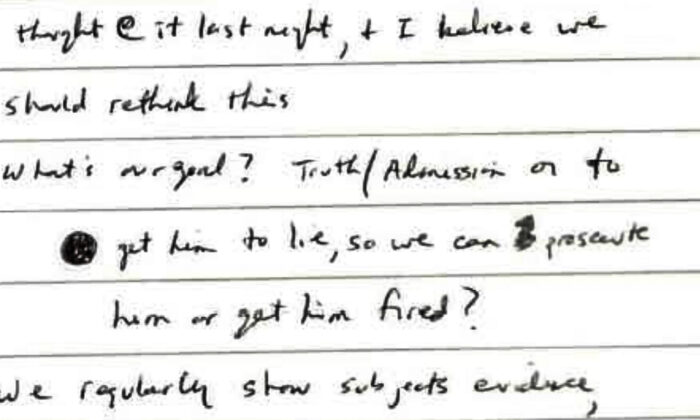 thought @ it last night, + I believe we
should rethink this
What's our goal? Truth/Admission or to
get him to lie, so we can prosecute
him or get him fired?
we regularly show subjects evidence,